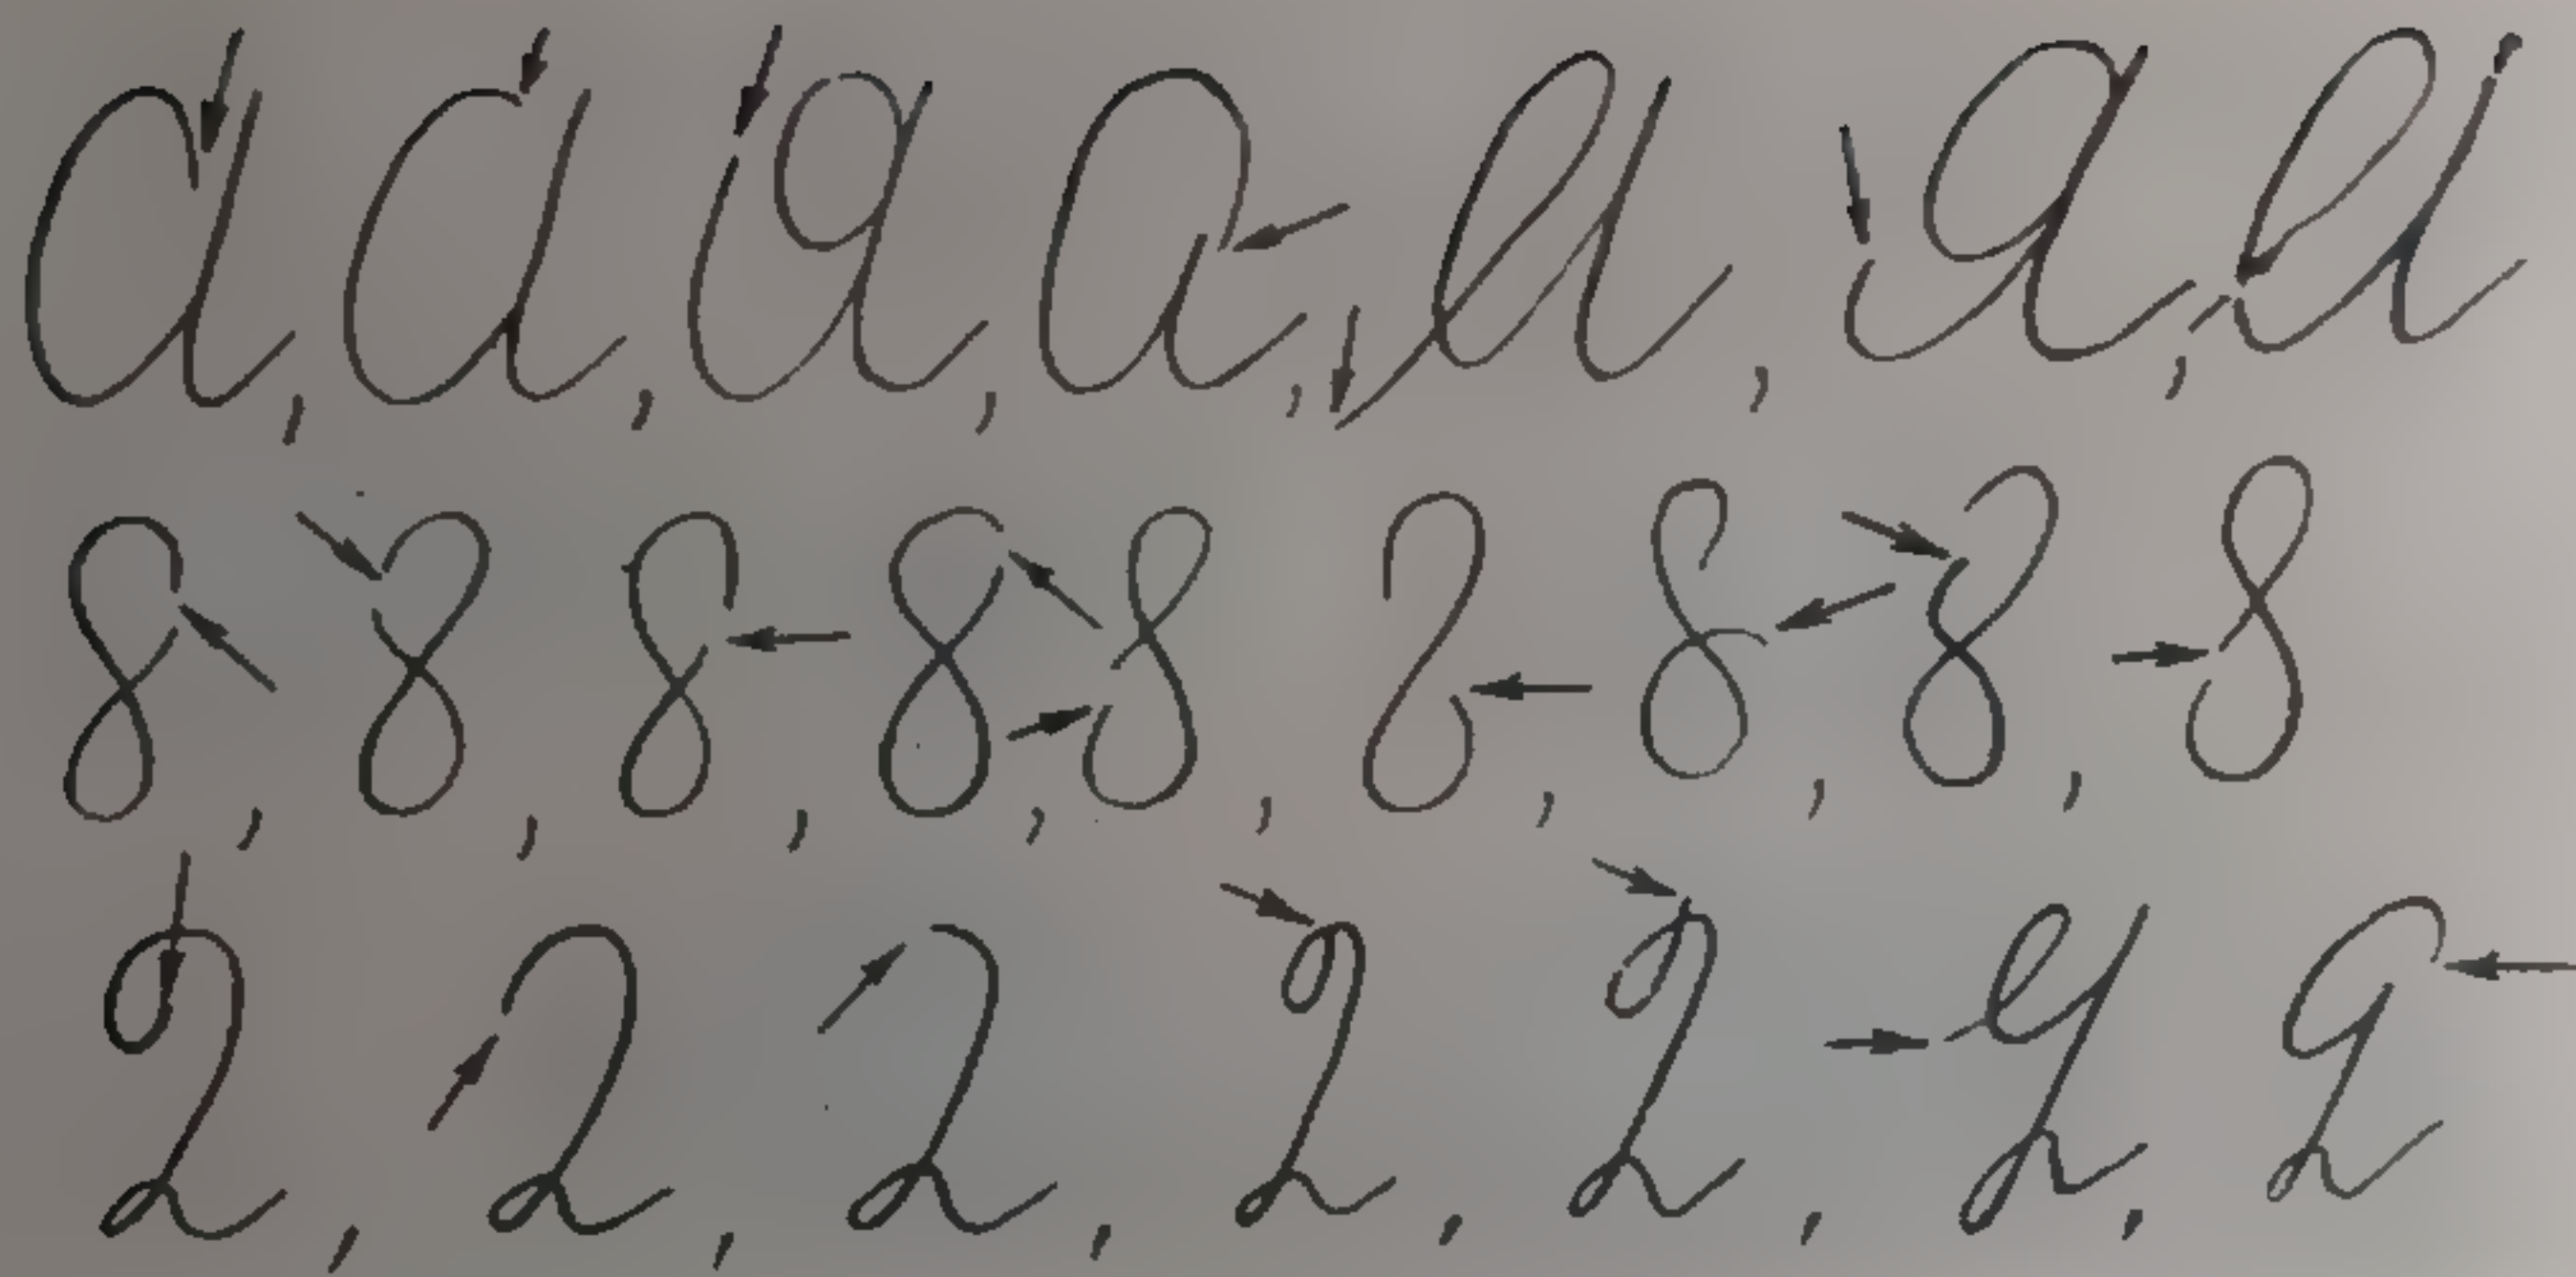 a, a, a, a, a, a, a
8, 8, 8, 8, 8, 8, 8, 8, 8
2, 2, 2, 2, 2, 2, 2